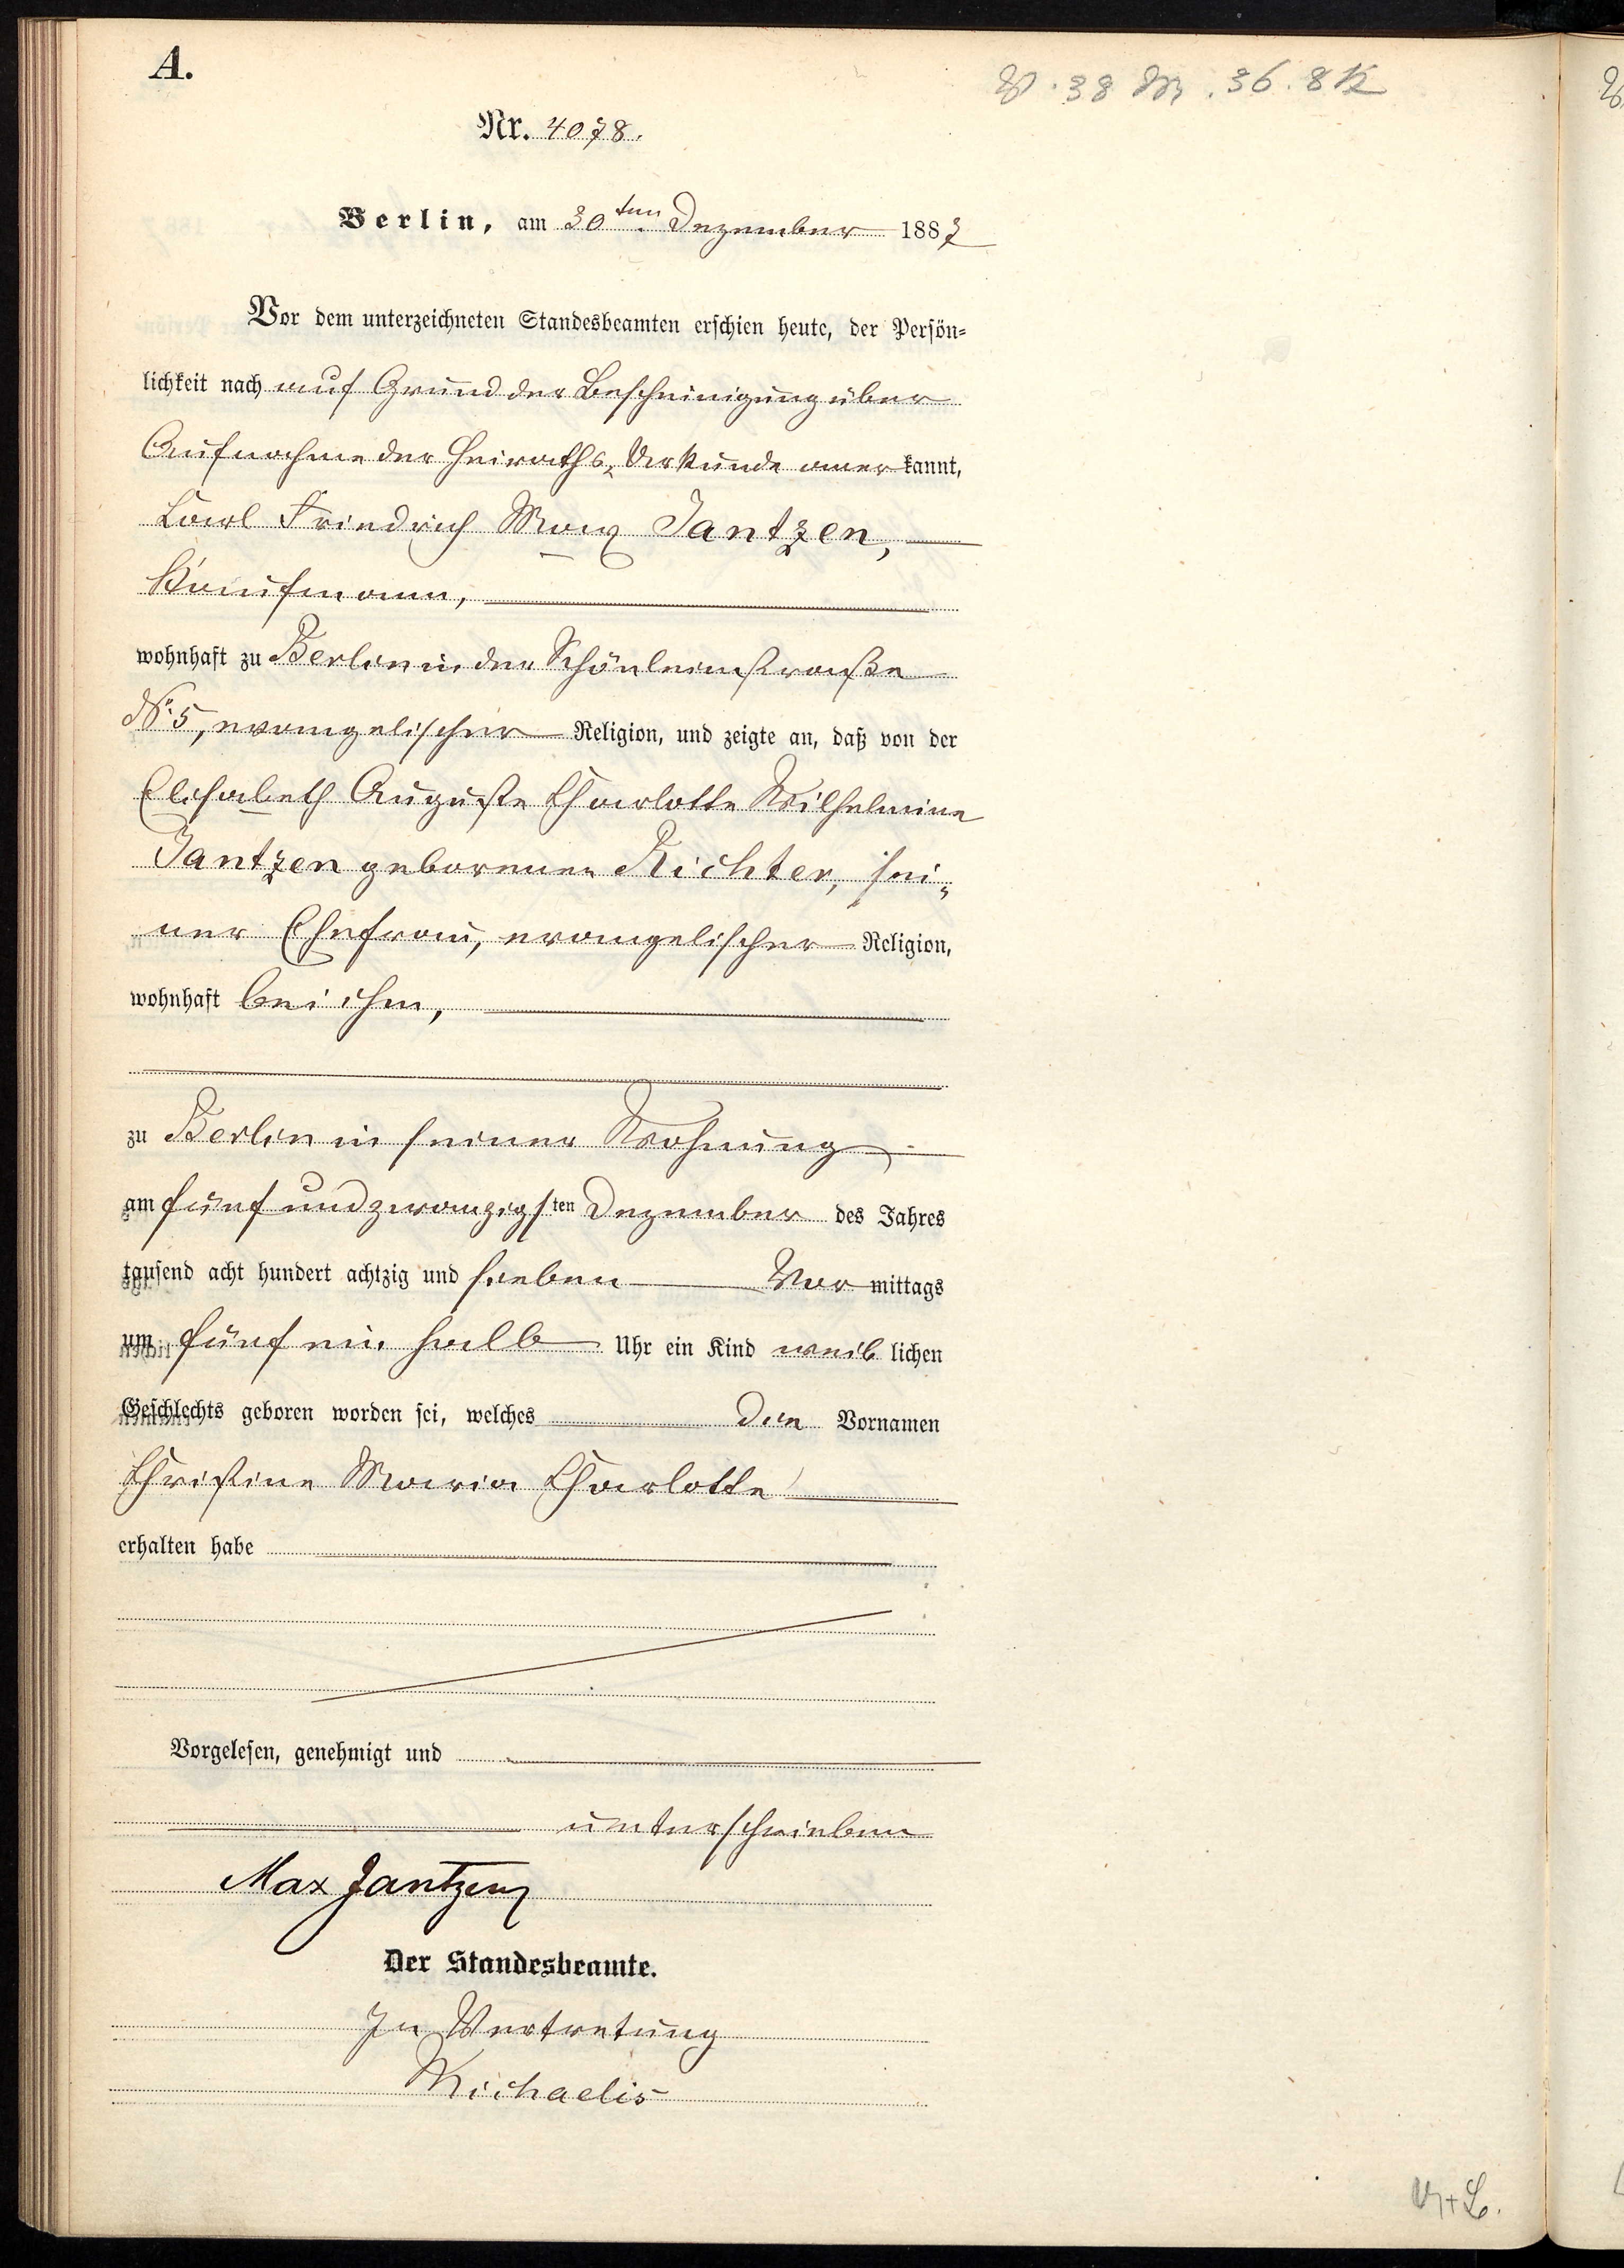 A.
V. 38 M. 36. 8 K
Nr. 4078.
Berlin, am 30ten Dezember 1887
Vor dem unterzeichneten Standesbeamten erschien heute, der Persön-
lichkeit nach auf Grund der Bescheinigung über
Aufnahme der Heiraths-Urkunde anerkannt,
Carl Friedrich Max Jantzen,
Kaufmann,
wohnhaft zu Berlin in der Schönleinstraße
No. 5, evangelischer Religion, und zeigte an, daß von der
Elisabeth Auguste Charlotte Wilhelmine
Jantzen geborenen Richter, sei-
ner Ehefrau, evangelischer Religion,
wohnhaft bei ihm,
zu Berlin in seiner Wohnung
am fünf und zwanzigsten Dezember des Jahres
tausend acht hundert achtzig und sieben Vormittags
um fünf ein halb Uhr ein Kind weiblichen
Geschlechts geboren worden sei, welches die Vornamen
Christine Maria Charlotte
erhalten habe
Vorgelesen, genehmigt und
unterschrieben
Max Jantzen
Der Standesbeamte.
In Vertretung
Michaelis